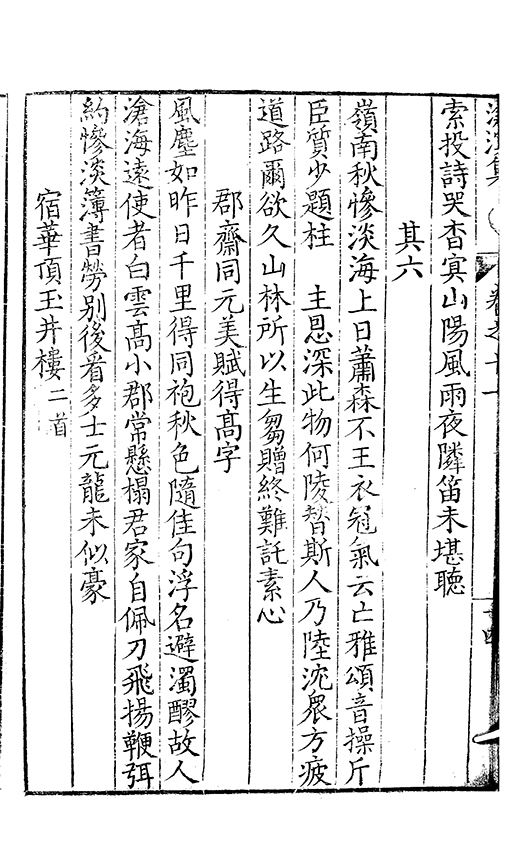 滄溟集
卷之十一
索投詩哭杳㝠山陽風雨夜隣笛未堪聽
其六
嶺南秋慘淡海上日蕭森不王衣冠氣云亡雅頌音操斤
臣質少題柱　主恩深此物何陵替斯人乃陸沈衆方疲
道路爾欲久山林所以生芻贈終難託素心
郡齋同元美賦得高字
風塵如昨日千里得同袍秋色隨佳句浮名避濁醪故人
滄海遠使者白雲髙小郡常懸榻君家自佩刀飛揚鞭弭
約慘淡簿書勞别後看多士元龍未似豪
宿華頂玉井樓二首